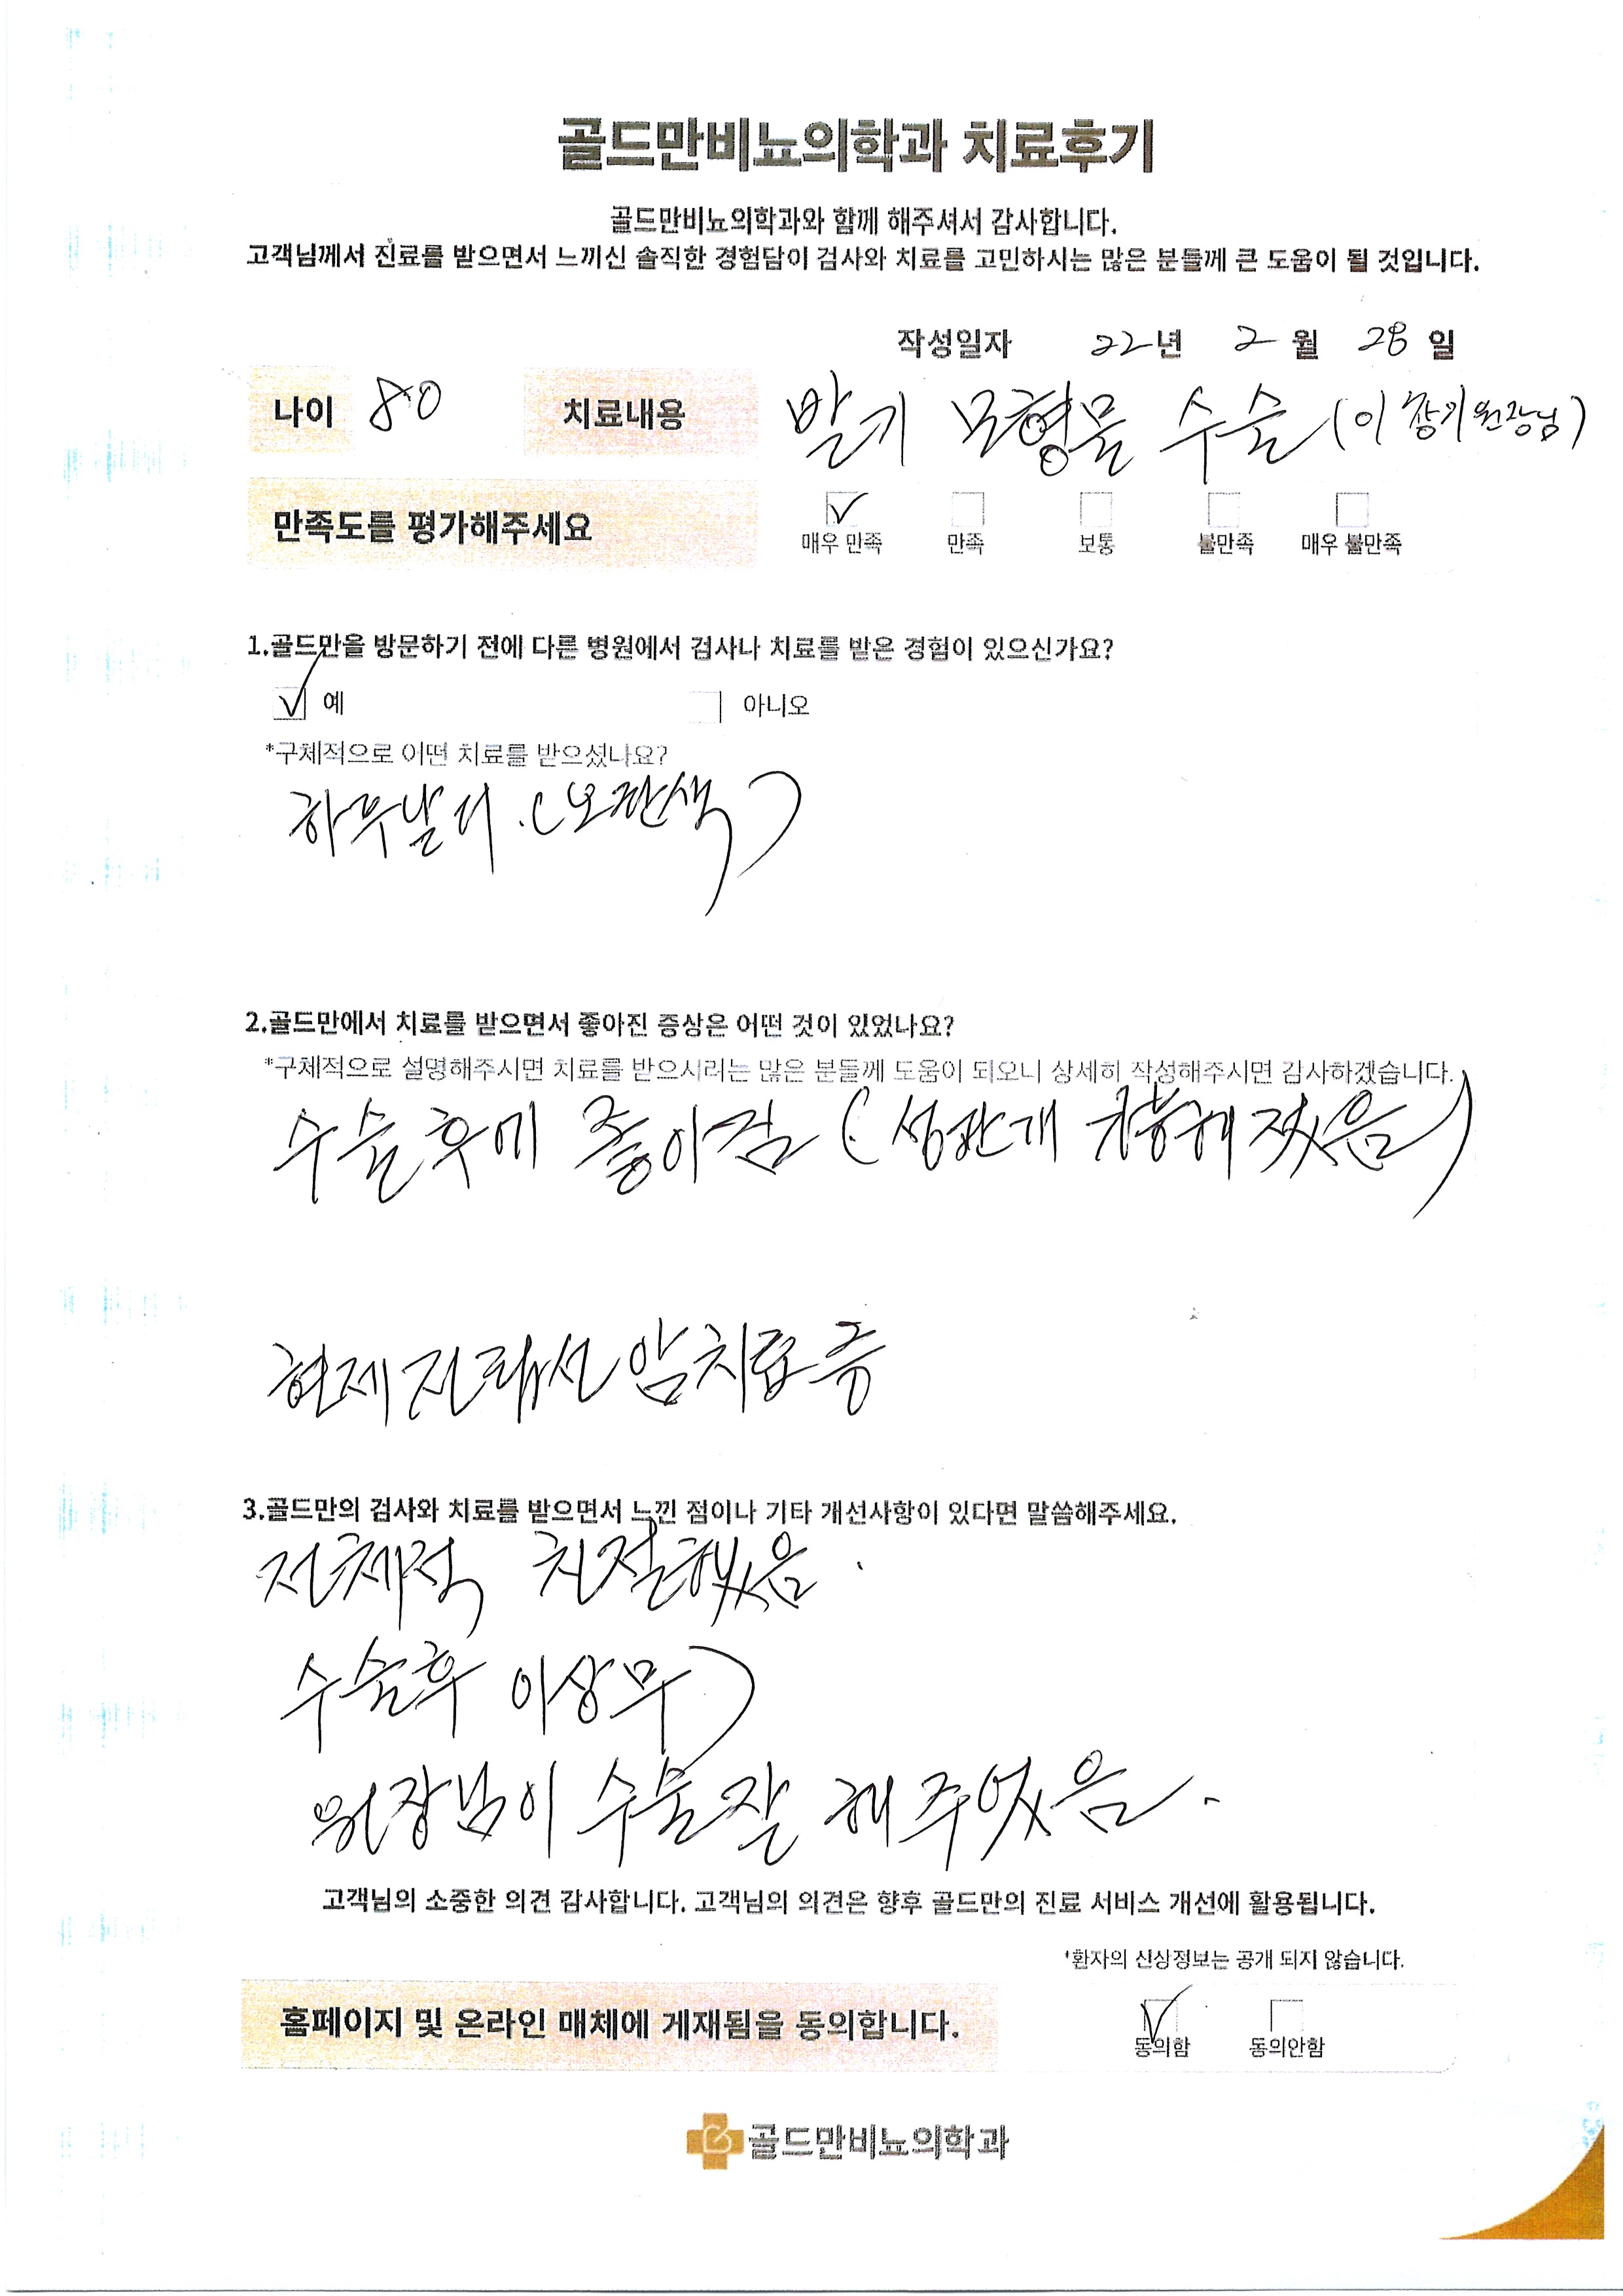 골드만비뇨의학과 치료후기
골드만비뇨의학과와 함께 해주셔서 감사합니다.
고객님께서 진료를 받으면서 느끼신 솔직한 경험담이 검사와 치료를 고민하시는 많은 분들께 큰 도움이 될 것입니다.
작성일자 22년 2월 28일
나이 80 치료내용 발기 모형물 수술 (이 창기 원장님)
만족도를 평가해주세요
매우 만족 만족 보통 불만족 매우 불만족
1.골드만을 방문하기 전에 다른 병원에서 검사나 치료를 받은 경험이 있으신가요?
예 아니오
*구체적으로 어떤 치료를 받으셨나요?
하루날디.
2.골드만에서 치료를 받으면서 좋아진 증상은 어떤 것이 있었나요?
*구체적으로 설명해주시면 치료를 받으시려는 많은 분들께 도움이 되오니 상세히 작성해주시면 감사하겠습니다.
수술후에 좋아짐 (성관개
현제 전립선 암치료중
3.골드만의 검사와 치료를 받으면서 느낀 점이나 기타 개선사항이 있다면 말씀해주세요.
전체적 친절했음.
수술후 이상무)
원장님이 수술잘 해 주었음.
고객님의 소중한 의견 감사합니다. 고객님의 의견은 향후 골드만의 진료 서비스 개선에 활용됩니다.
*환자의 신상정보는 공개 되지 않습니다.
홈페이지 및 온라인 매체에 게재됨을 동의합니다.
동의함 동의안함
골드만비뇨의학과